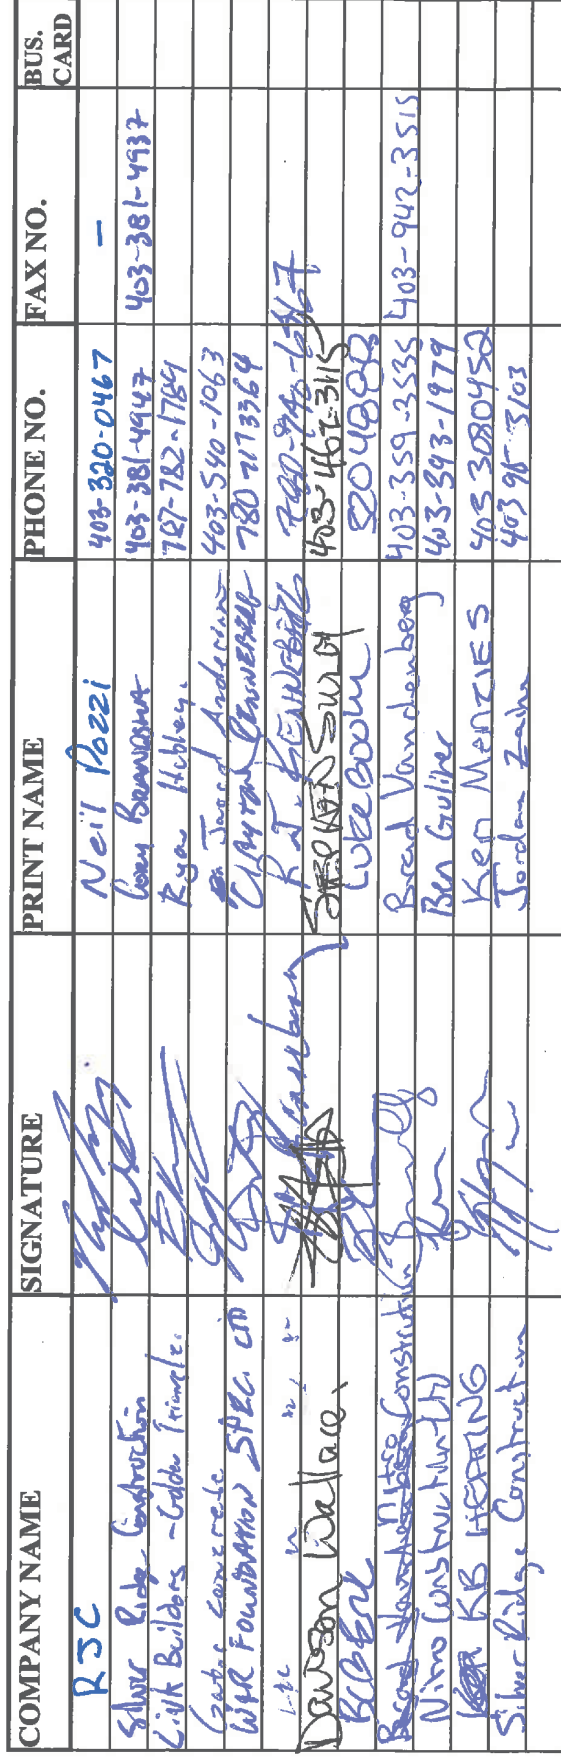 COMPANY NAME SIGNATURE PRINT NAME PHONE NO. FAX NO. BUS. CARD
RJC Neil Pozzi 403-320-0467 —
Silver Ridge Construction Corey 403-381-4947 403-381-4937
Link Builders - Golden Triangle. Ryan 787-782-1789
Gator Concrete Jarod Anderson 403-540-1063
W&R FOUNDATION SPEC. LTD CLAYTON 780 7173364
" " " R.J.
Dawson Wallace. STEPHEN 403-462-3115
Luke Boom 8204888
Nitro Construction Brad Vandenberg 403-359-3535 403-942-3515
Nitro Construction LTD Ben Guliner 403-393-1979
KB HEATING Ken MENZIES 403 3080452
Silver Ridge Construction Jordan 403 95 3103